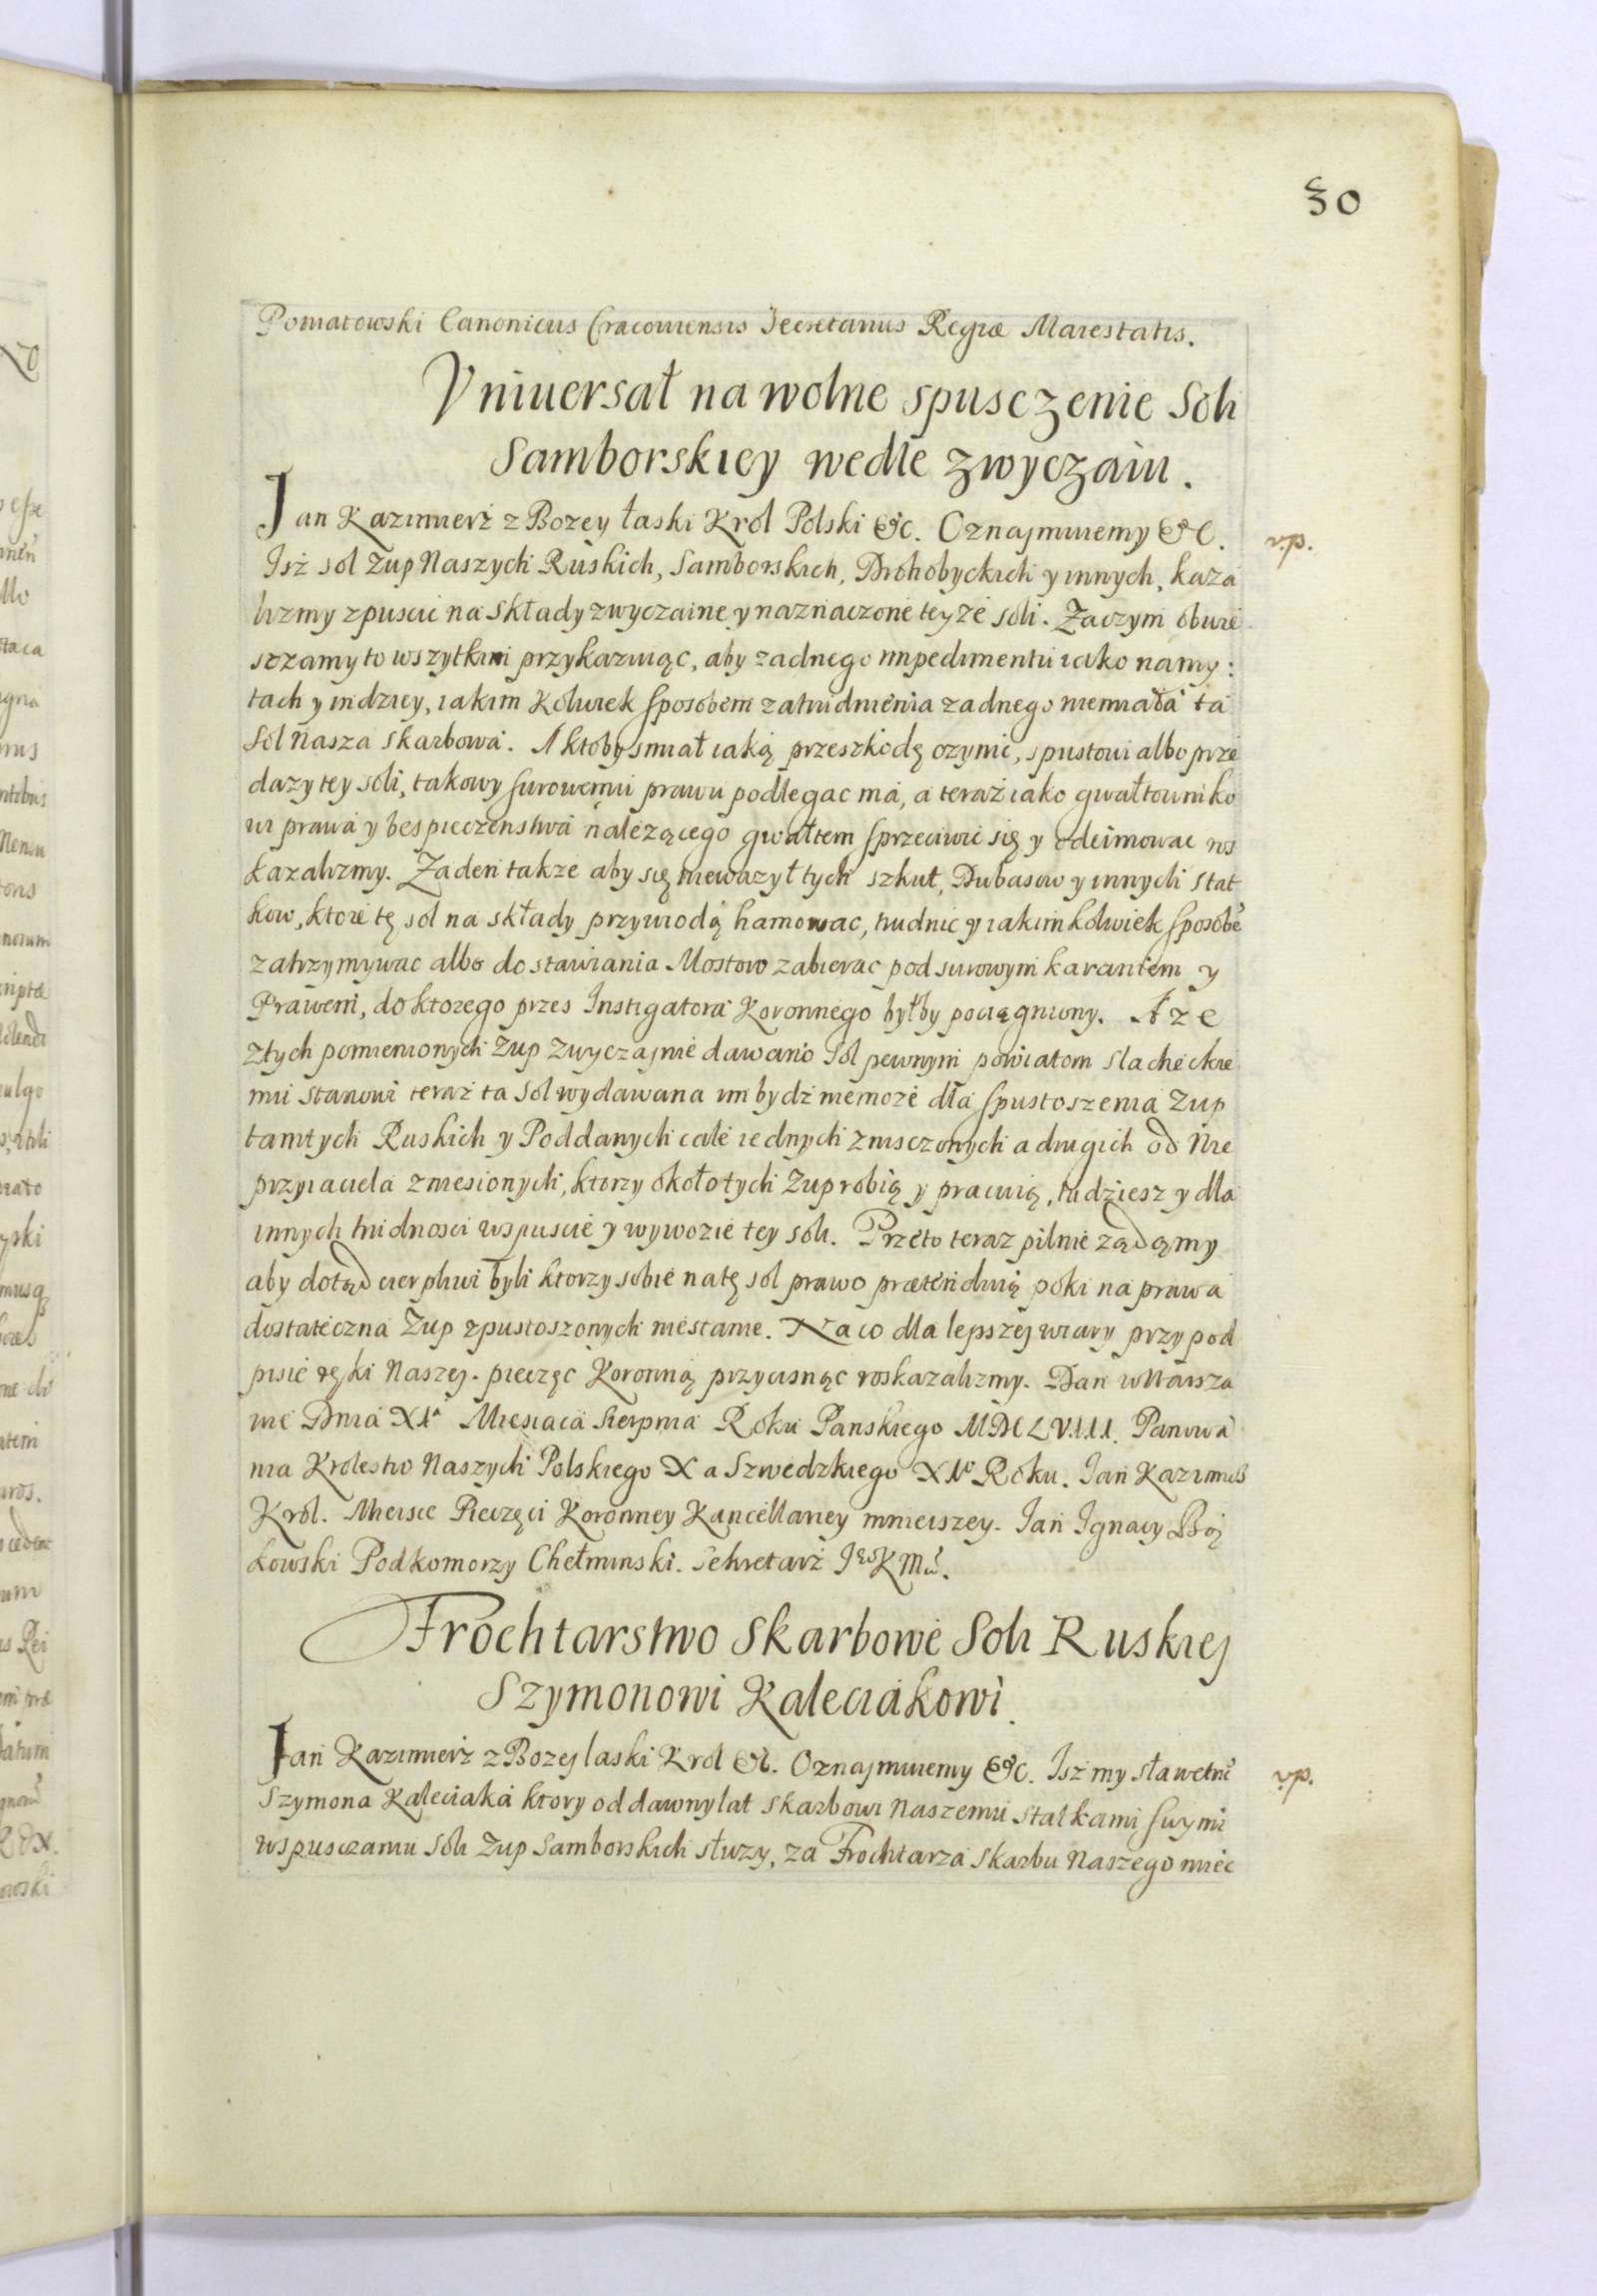 30
Poniatowski Canonicus Cracouiensis Secretarius Regiæ Maiestatis.
Vniuersał na wolne spusczenie Soli
Samborskiey wedle zwyczaiu.
Jan Kazimierz z Bozey łaski Krol Polski &c. Oznajmuiemy &c.
v.p.
Jsż sol Zup Naszych Ruskich, Samborskich, Drohobyckich y innych, kaza
lizmy spuscic na składy zwyczaine y naznaczone teyże soli. Zaczym obwie
sczamy to wszytkim przykazuiąc, aby zadnego impedimentu iako na my:
tach y indziey, iakim kolwiek sposobem zatrudnienia zadnego niemiała ta
Sol Nasza skarbowa. A ktoby smiał iaką przeszkodę czynic, spustowi albo prze
dazy tey soli, takowy surowemu prawu podlegac ma, a teraz iako gwałtowniko
wi prawa y bespieczenstwa należącego gwałtem sprzeciwic się y odeimowac ros
kazalizmy. Zaden takze aby się niewazył tych szkut, Dubasow y innych stat
kow, ktore tę sol na składy przywiodą hamowac, trudnic y iakimkolwiek sposobe
zatrzymywac albo do stawiania Mostow zabierac pod surowym karaniem y
Prawem, do ktorego przes Instigatora Koronnego byłby pociągniony. A ze
z tych pomienionych Zup zwyczajnie dawano Sol pewnym powiatom slacheckie
mu stanowi teraz ta sol wydawana im bydz niemoże dla spustoszenia Zup
tamtych Ruskich y Poddanych cale iednych znisczonych a drugich od Nie
przyiaciela zniesionych, ktorzy około tych Zup robią y pracuią, tudziesz y dla
innych trudnosci w spuscie y wywozie tey soli. Przeto teraz pilnie ządąmy
aby dotąd cierpliwi byli ktorzy sobie na tę sol prawo prætenduią poki naprawa
dostateczna Zup spustoszonych niestanie. Na co dla lepszej wiary przy pod
pisie ręki Naszej. pieczęc Koronną przycisnąc roskazalizmy. Dan w Warsza
wie Dnia XIa Miesiaca Sierpnia Roku Panskiego MDCLVIII. Panowa
nia Krolestw Naszych Polskiego X a Szwedzkiego XIo Roku. Jan Kazimierz
Krol. Mieisce Pieczęci Koronney Kancellariey mnieiszey. Jan Ignacy Bąj
kowski Podkomorzy Chełminski. Sekretarz Jego K Mci.
Frochtarstwo Skarbowe Soli Ruskiej
Szymonowi Kaleciakowi.
Jan Kazimierz z Bozej laski Krol &c. Oznajmuiemy &c. Jsż my sławetne
v.p.
Szymona Kaleciaka ktory od dawny lat skarbowi Naszemu statkami swymi
w spusczaniu Soli Zup Samborskich słuzy, za Frochtarza skarbu Naszego miec